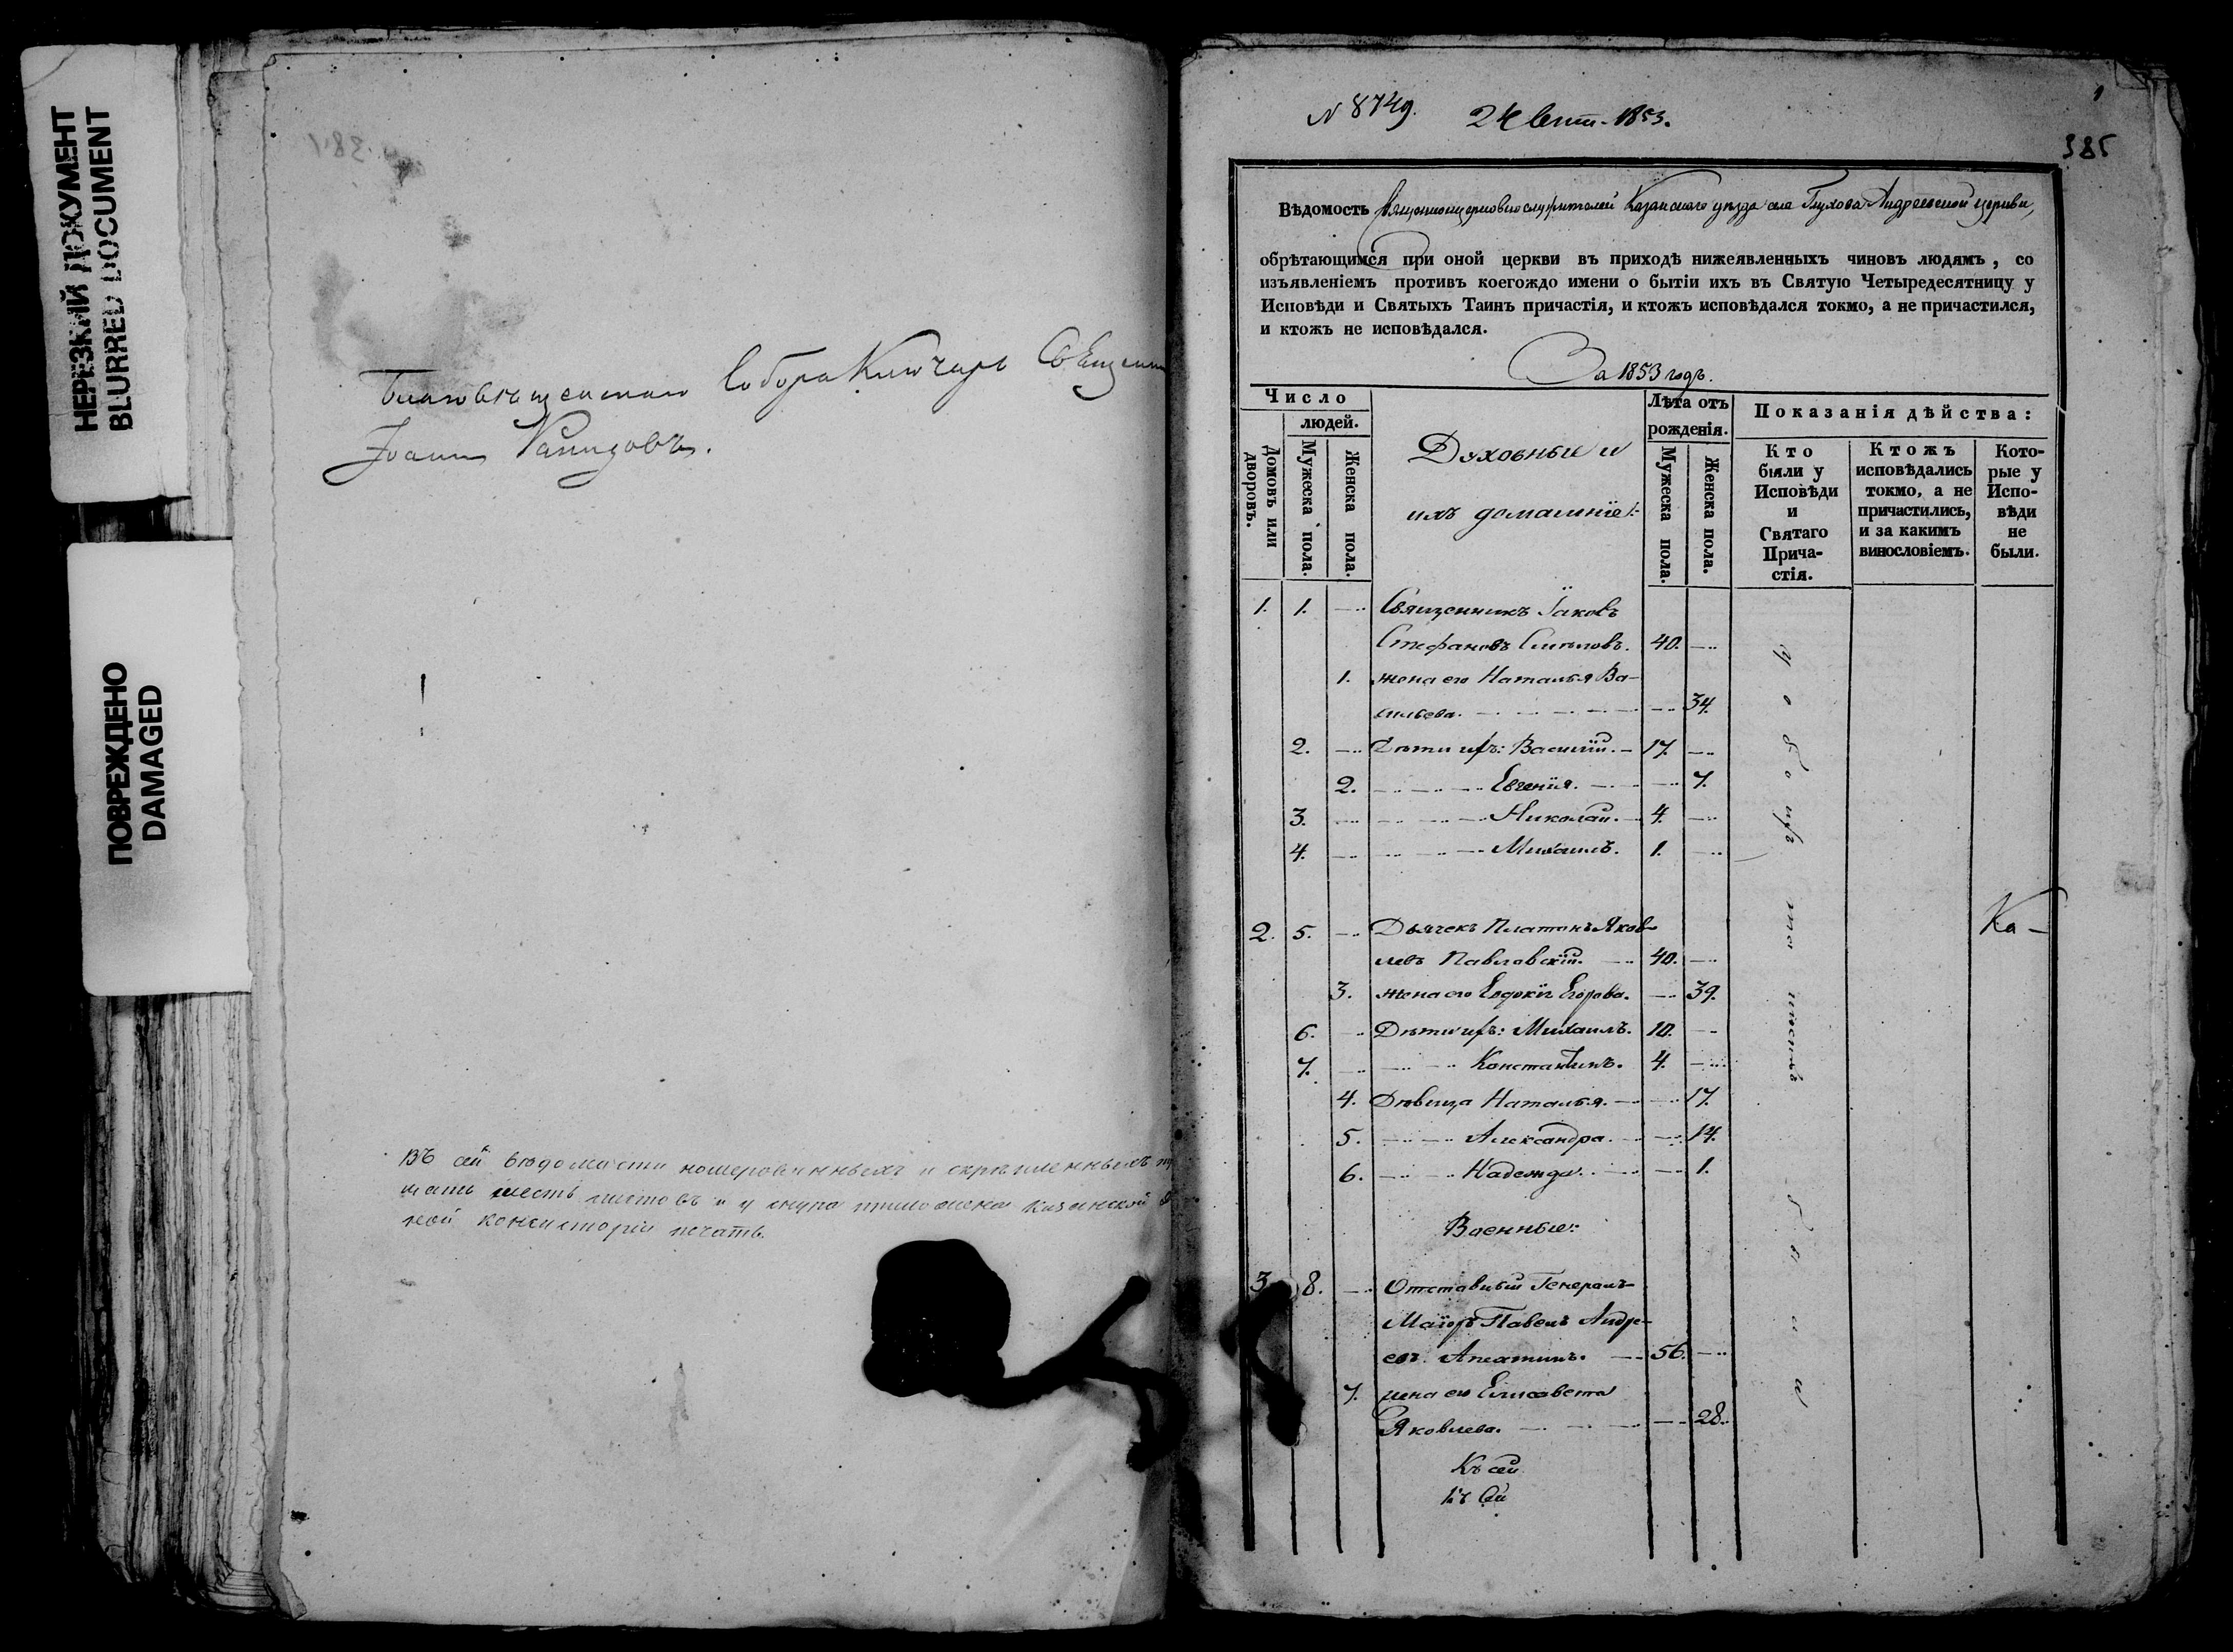 НЕРЕЗКИЙ ДОКУМЕНТ
BLURRED DOCUMENT
ПОВРЕЖДЕНО
DAMAGED
Благовѣщенскаго Собора Ключарь Священ
Іоаннъ
Въ сей вѣдомости номерованныхъ и скрѣпленныхъ
цать шесть листовъ и у снура приложена Казанской
ской консисторіи печать.
N 8749. 24 Сент. 1853.
1
385
Вѣдомость священноцерковнослужителей Казанскаго уѣзда села Глухова Андреевской церкви,
обрѣтающимся при оной церкви въ приходѣ нижеявленныхъ чиновъ людямъ, со
изъявленіемъ противъ коегождо имени о бытіи ихъ въ Святую Четыредесятницу у
Исповѣди и Святыхъ Таинъ причастія, и ктожъ исповѣдался токмо, а не причастился,
и ктожъ не исповѣдался.
За 1853 годъ.
Число
людей.
Домовъ или дворовъ.
Мужеска пола.
Женска пола.
Духовные и
ихъ домашніе:
Лѣта отъ
рожденія.
Мужеска пола.
Женска пола.
Показанія дѣйства:
Кто
были у
Исповѣди
и
Святаго
Прича-
стія.
Ктожъ
исповѣдались
токмо, а не
причастились,
и за какимъ
винословіемъ.
Кото-
рые у
Испо-
вѣди
не
были.
1. 1. Священникъ Іаковъ
Стефановъ 40.
1. жена его Наталья Ва-
сильева. 34.
2. Дѣти ихъ: Василій. 17.
2. Евгенія. 7.
3. Николай. 4.
4. Михаилъ. 1.
2. 5. Дьячекъ Платонъ Яков-
левъ Павловскій. 40.
3. жена его Евдокія Егорова. 39.
6. Дѣти ихъ: Михаилъ. 10.
7. Константинъ. 4.
4. Дѣвица Наталья. 17.
5. Александра. 14.
6. Надежда. 1.
Ка-
Военные:
3 8. Отставный Генералъ-
Маіоръ Павелъ Андре-
евъ 56.
7. жена его Елисавета
Яковлева. 28.
Къ сей
Къ сей